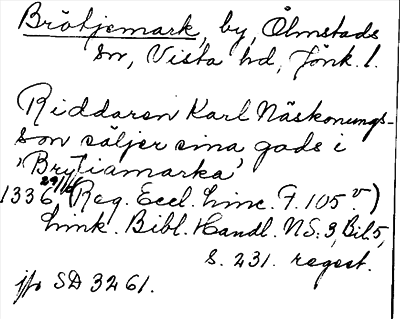 Brötjemark, by, Ölmstads
sn, Vista hd, Jönk. l.
Riddaren Karl Näskonungs-
son säljer sina gods i
'Brytiamarka'
1336 29/11 (Reg. Eccl. Linc. F. 105 v)
Link. Bibl. Handl. NS: 3, Bil. 5,
s. 231. regest.
jfr SD 3261.